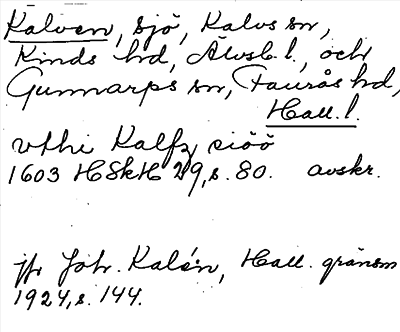 Kalven, sjö, Kalvs sn,
Kinds hd, Älvsb. l., och
Gunnarps sn, Faurås hd,
Hall. l.
vthi Kalfz siöö
1603 HSkH 29, s. 80. avskr.
jfr Joh. Kalén, Hall. gränsm
1924, s. 144.